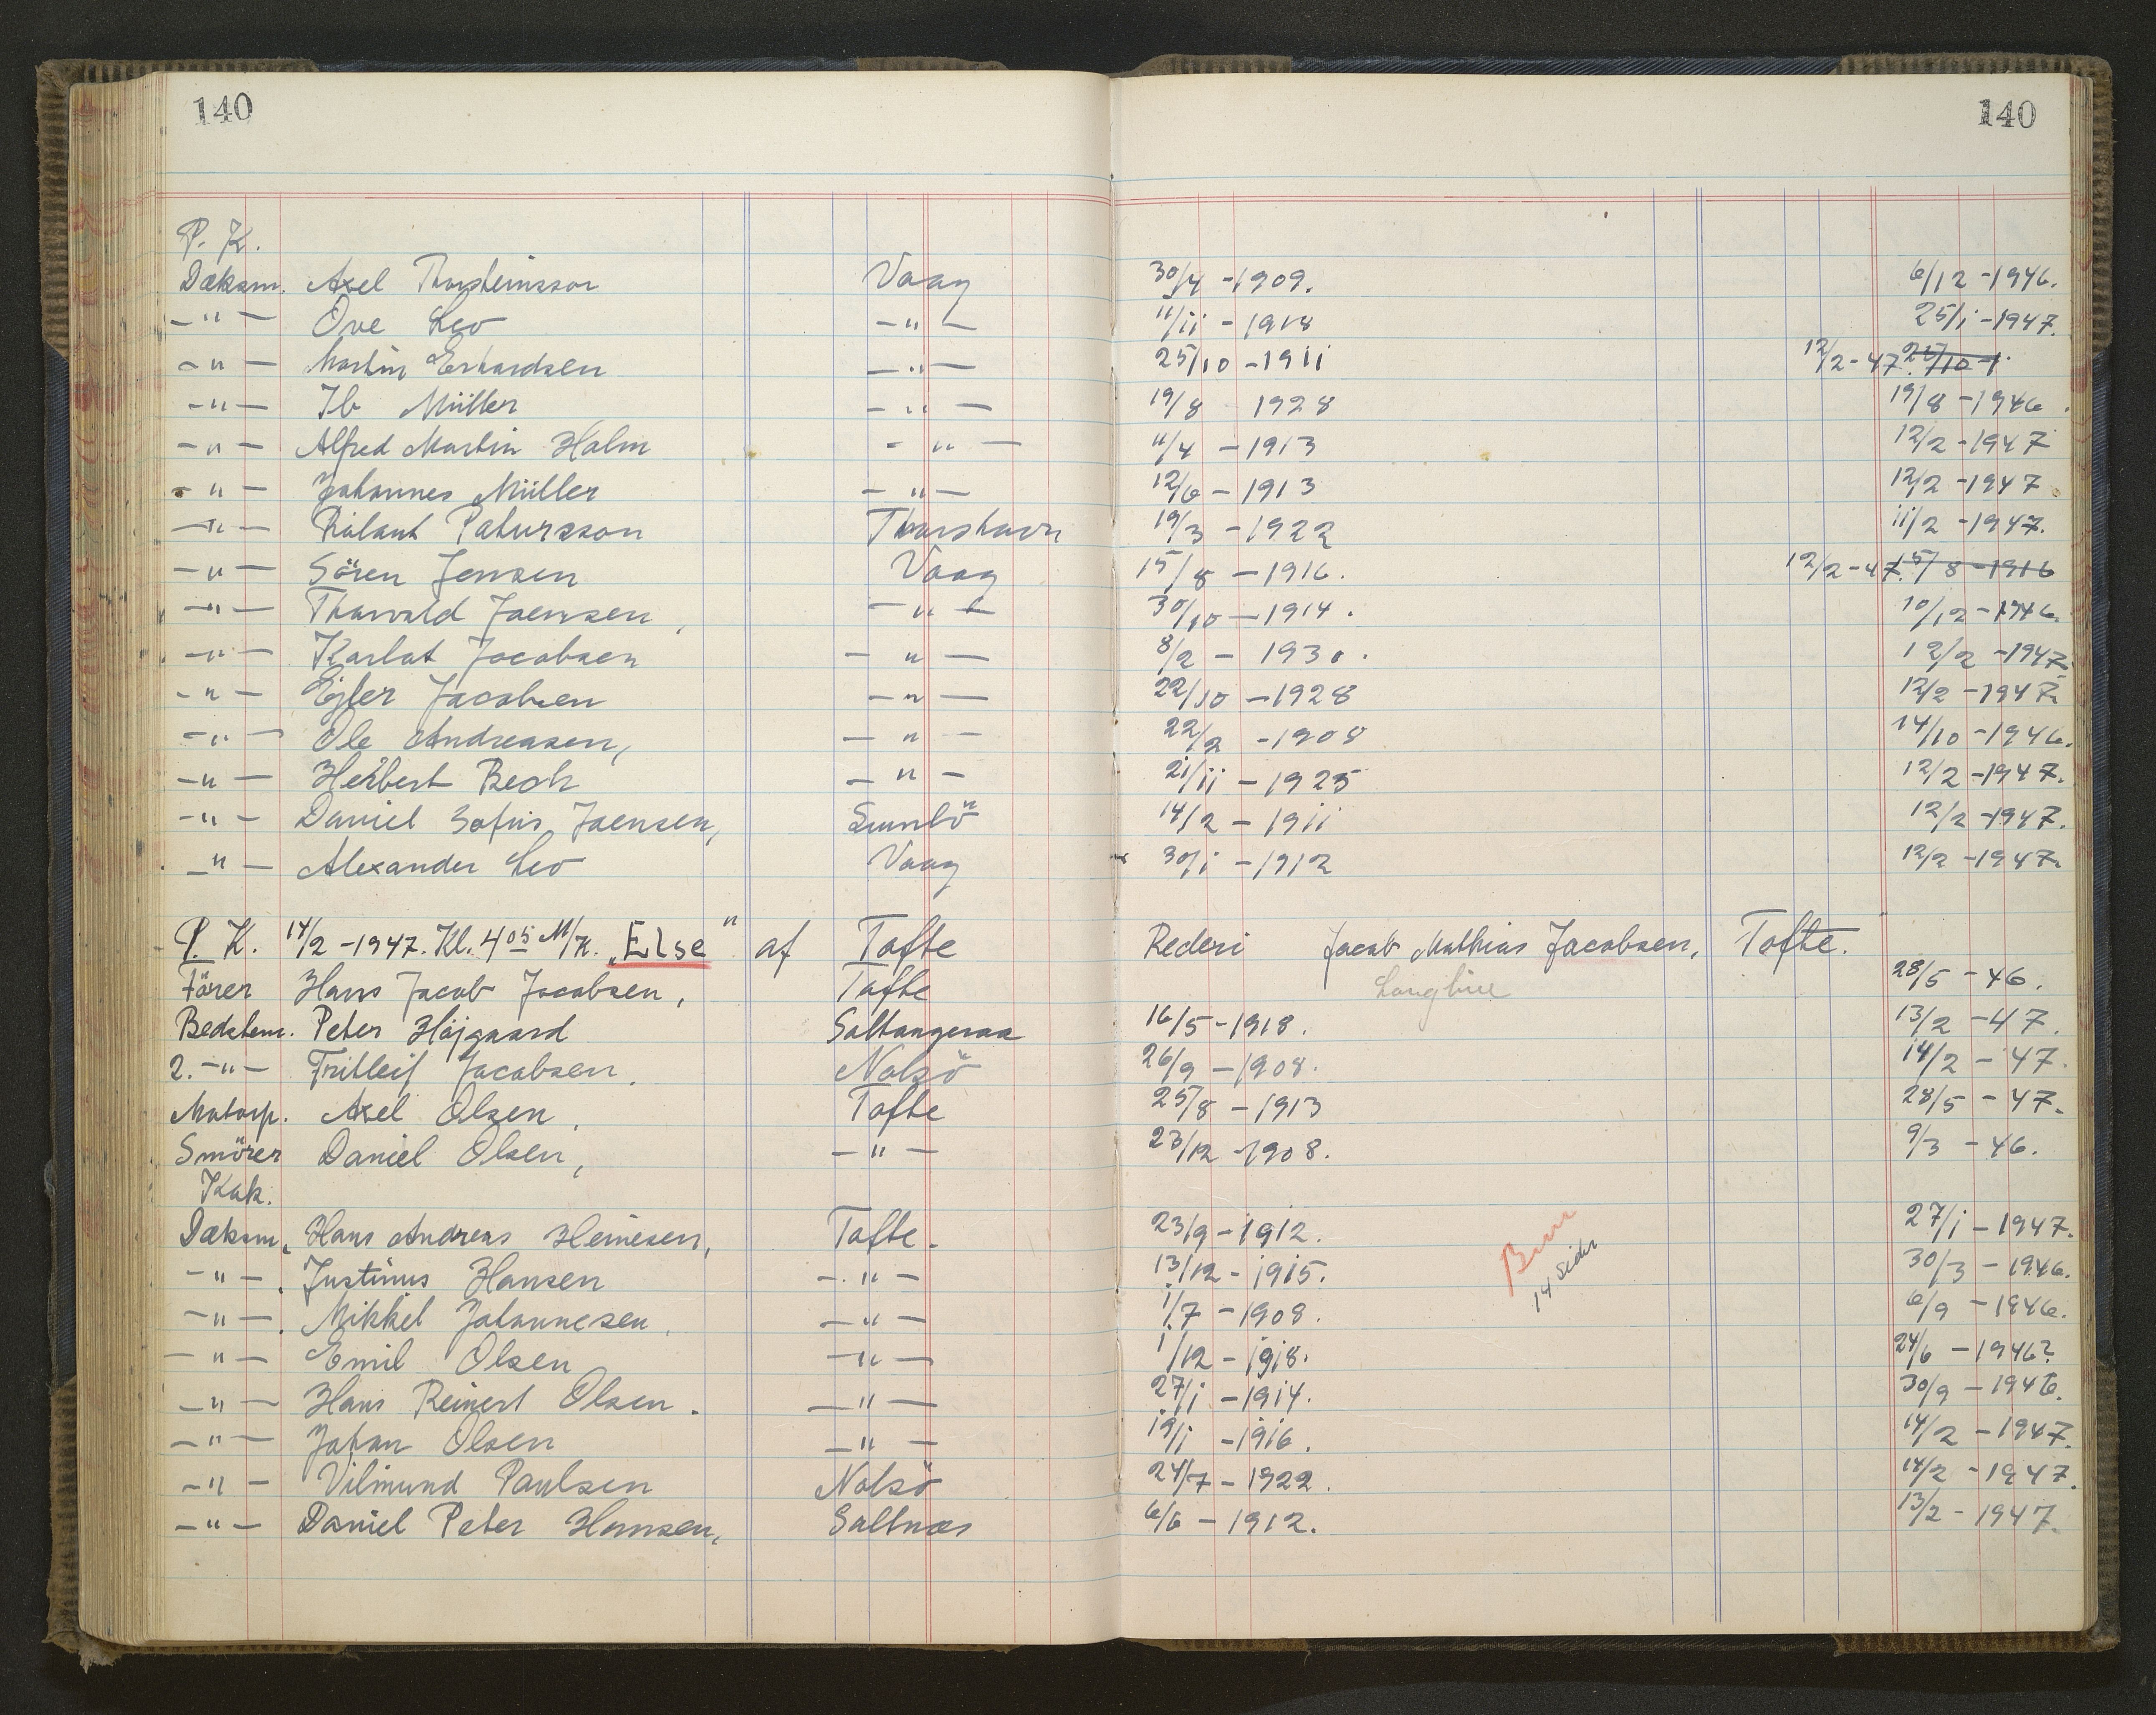 140 140
P. K.
Dæksm. Axel Thorsteinsson Vaag 30/4 -1909. 6/12 -1946.
-"- Ove Leo -"- 11/11 -1918 25/1 -1947.
-"- Martin Erhardsen -"- 25/10 -1911 12/2-47. 25/10-1.
-"- Ib Müller -"- 19/8 1928 19/8 -1946.
-"- Alfred Martin Holm -"- 11/4 -1913 12/2 -1947
-"- Johannes Müller -"- 12/6 -1913 12/2 -1947
-"- Rólant Patursson Thorshavn 19/3 -1922 11/2 -1947.
-"- Sören Jensen Vaag 15/8 -1916. 12/2-47. 15/8 -1916
-"- Thorvald Joensen, -"- 30/10 -1914. 10/12 -1946.
-"- Karlot Jacobsen -"- 8/2 - 1930. 12/2 -1947.
-"- Ejler Jacobsen -"- 22/10 -1928 12/2 -1947.
-"- Ole Andreasen, -"- 22/2 -1908 14/10 -1946.
-"- Herbert Bech -"- 21/11 -1925 12/2 -1947.
-"- Daniel Sofus Joensen, Sumbö 14/2 -1911 12/2 -1947.
-"- Alexander Leo Vaag 30/1 -1912 12/2 -1947.
P. K. 14/2 -1947. Kl. 4 05 M/K. „Else" af Tofte Rederi Jacob Mathias Jacobsen, Tofte.
Förer Hans Jacob Jacobsen, Tofte Langline 28/5 -46.
Bedstem. Peter Højgaard Saltangeraa 16/5 -1918. 13/2 -47.
2. -"- Fritleif Jacobsen. Nolsö 26/9 -1908. 14/2 -47.
Motorp. Axel Olsen, Tofte 25/8 -1913 28/5 -47.
Smörer Daniel Olsen, -"- 23/12 -1908. 9/3 -46.
Kok.
Dæksm. Hans Andreas Heinesen, Tofte. 23/9 -1912. 27/1 -1947.
-"-. Justinus Hansen -"- 13/12 -1915. 30/3 -1946.
-"-. Mikkel Johannesen, -"- 1/7 -1908. 6/9 -1946.
14 sider
-"- Emil Olsen -"- 1/12 -1918. 24/6 -1946?
-"- Hans Reinert Olsen. -"- 27/1 -1914. 30/9 -1946.
-"- Johan Olsen -"- 19/1 -1916. 14/2 -1947.
-"- Vilmund Paulsen Nolsö 24/7 -1922. 14/2 -1947.
-"- Daniel Peter Hansen, Saltnes 6/6 -1912. 13/2 -1947.